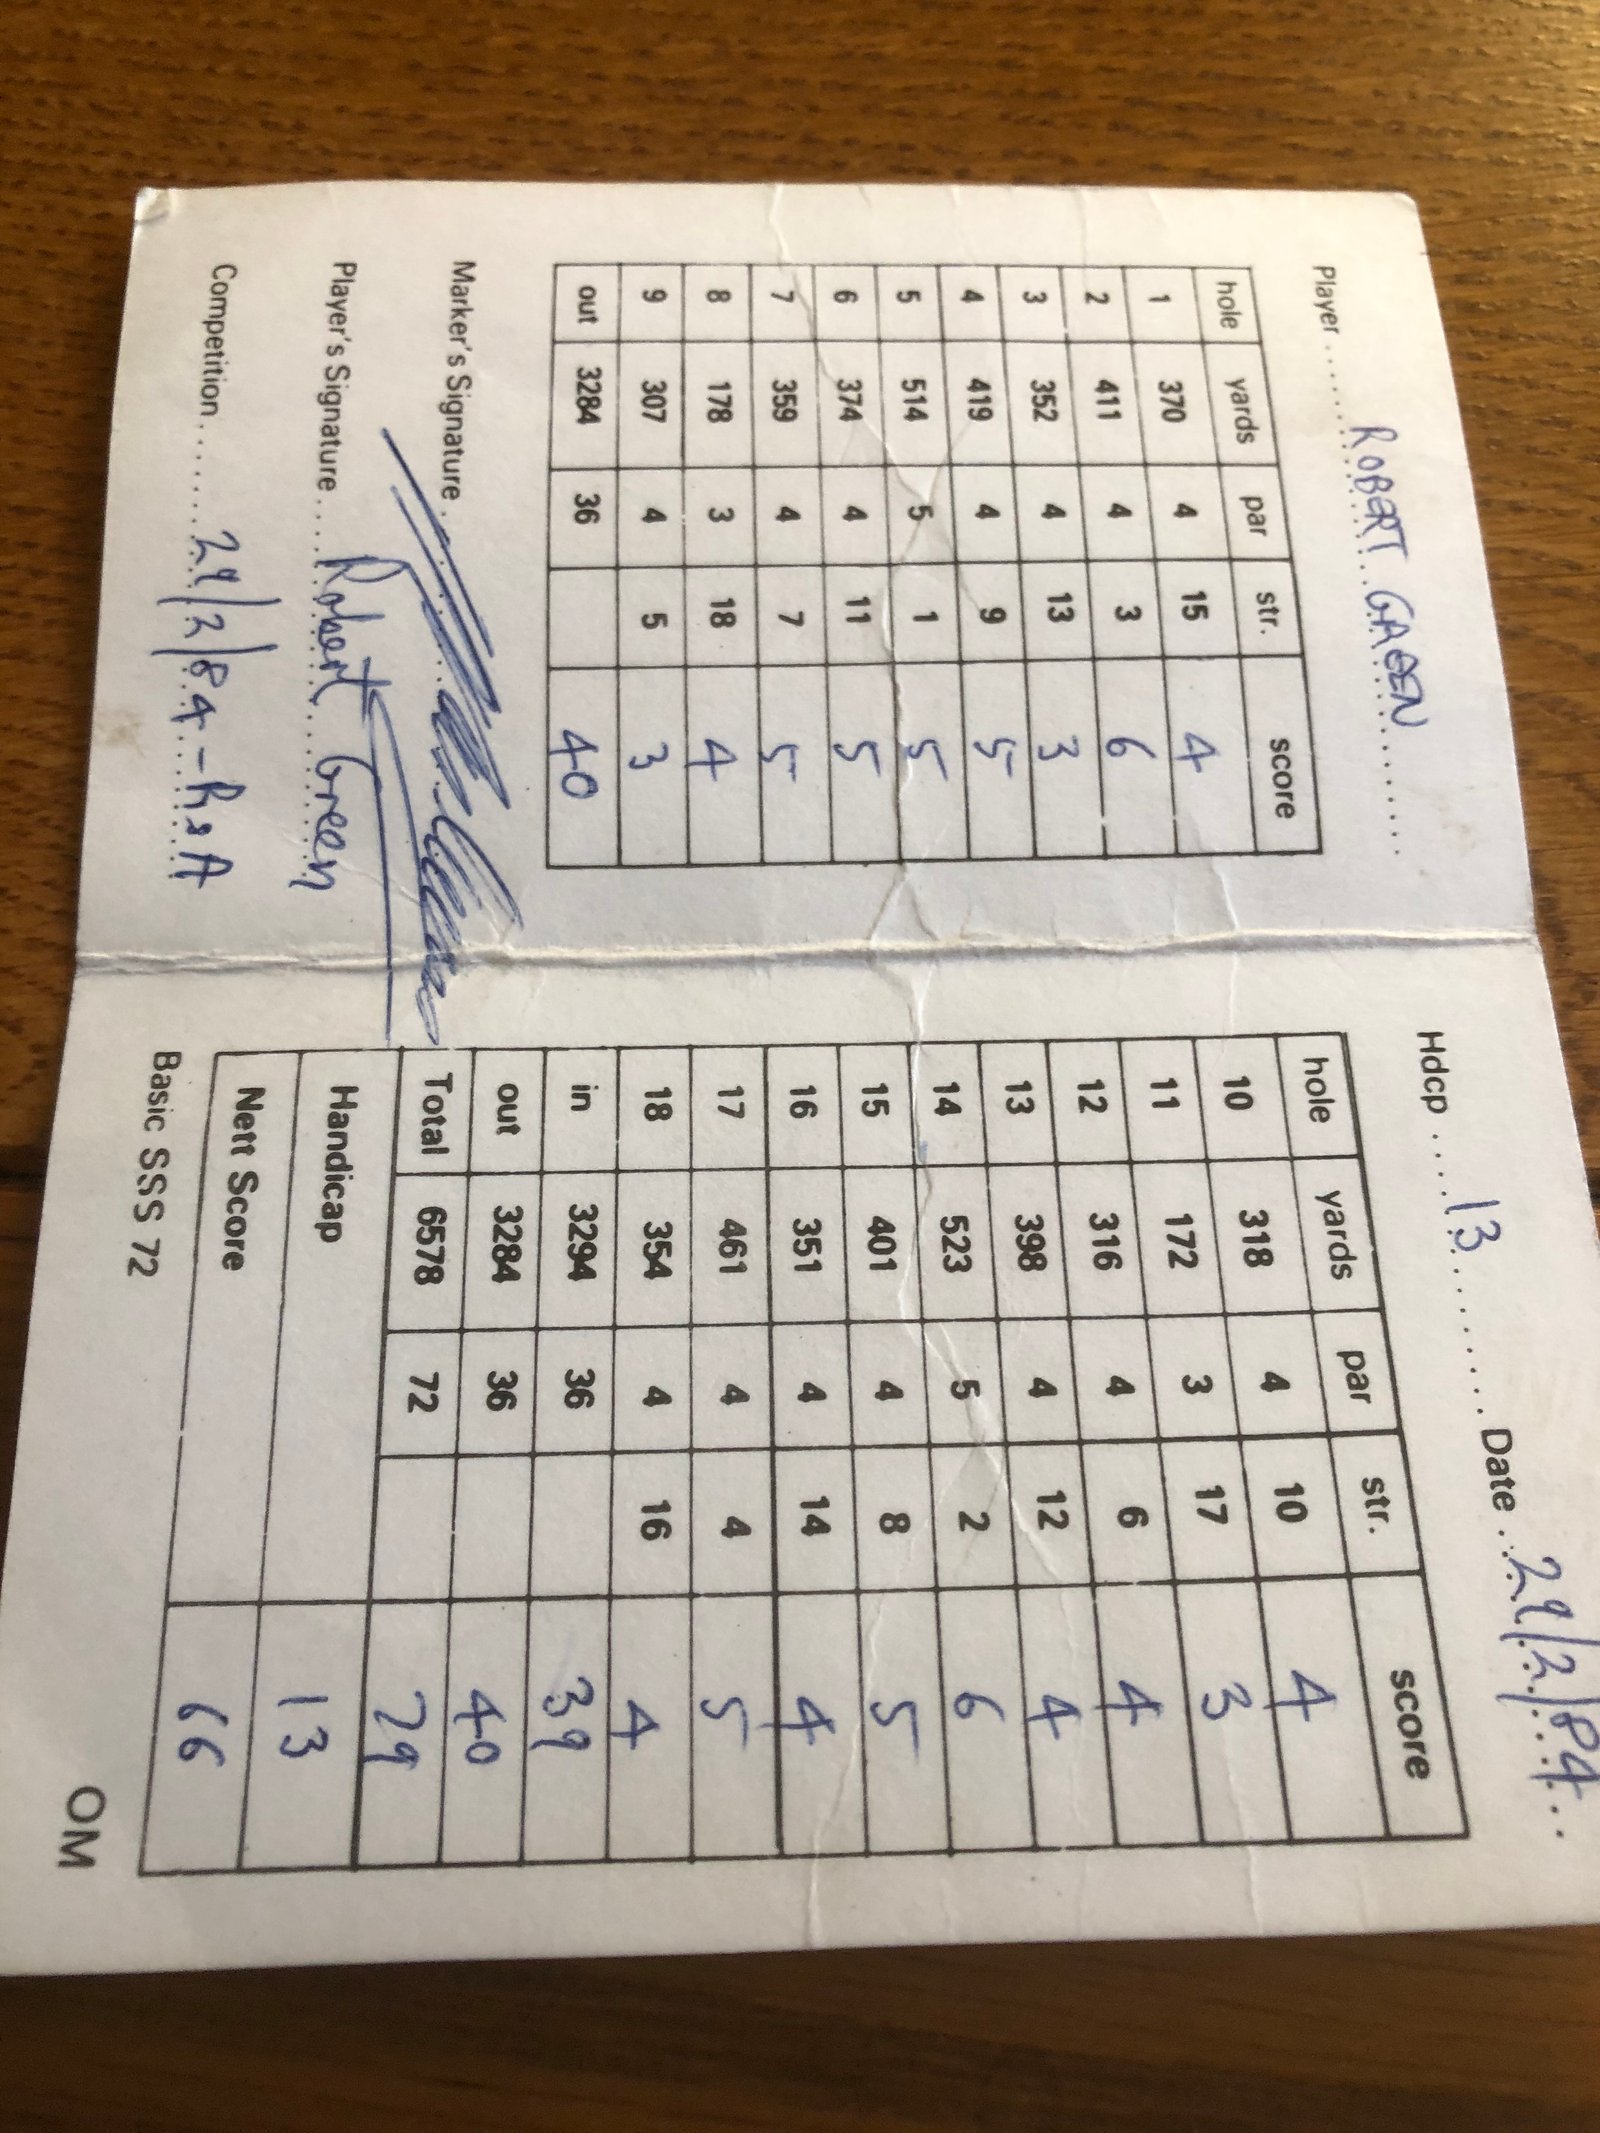 Player ROBERT GREEN
hole yards par str. score
1 370 4 15 4
2 411 4 3 6
3 352 4 13 3
4 419 4 9 5
5 514 5 1 5
6 374 4 11 5
7 359 4 7 5
8 178 3 18 4
9 307 4 5 3
out 3284 36 40
Marker's Signature
Player's Signature Robert Green
Competition 29/2/84 - R&A
Hdcp 13 Date 29/2/84
hole yards par str. score
10 318 4 10 4
11 172 3 17 3
12 316 4 6 4
13 398 4 12 4
14 523 5 2 6
15 401 4 8 5
16 351 4 14 4
17 461 4 4 5
18 354 4 16 4
in 3294 36 39
out 3284 36 40
Total 6578 72 79
Handicap 13
Nett Score 66
Basic SSS 72
OM